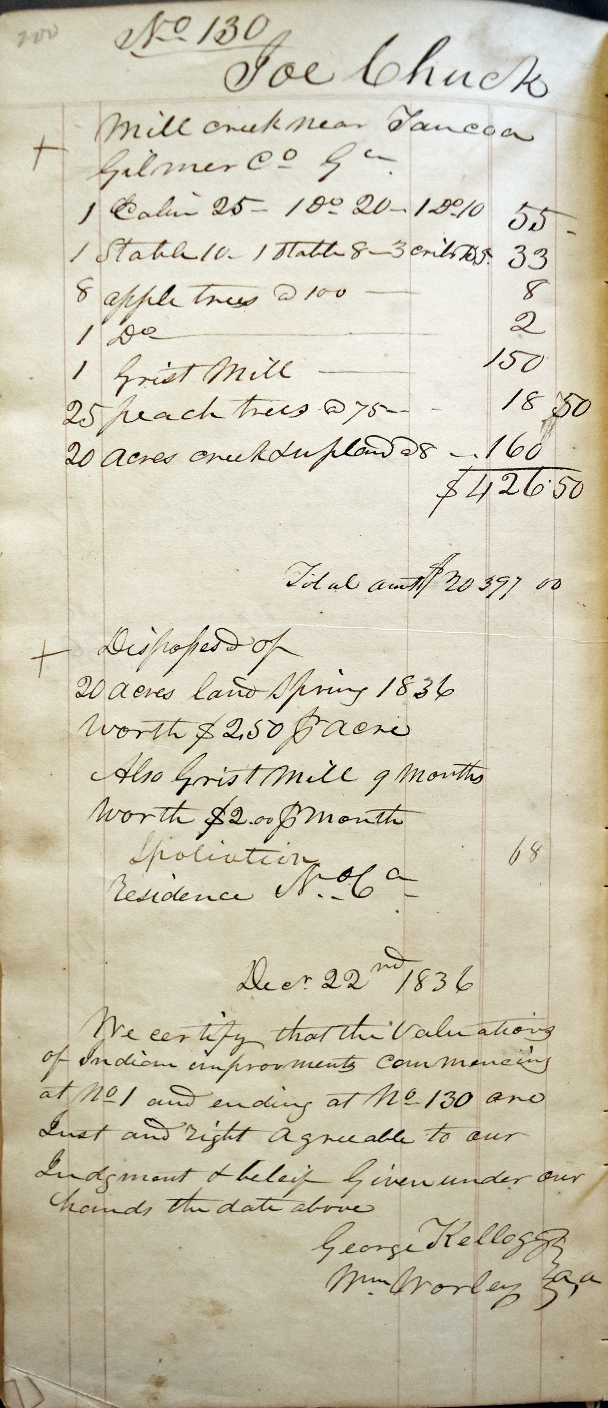 200
No 130
Joe Chuck
+ Mill creek near
Gilmer Co Ga
1 Cabin 25- 1 Do 20- 1 Do 10 55-
1 Stable 10- 1 Stable 8- 3 cribs 15 33
8 apple trees @ 100 — 8
1 Do — 2
1 Grist Mill — 150
25 peach trees @ 75 — 18 50
20 acres creek & upland @ 8 — 160
$426.50
Total amt $20397 00
+ Disposesd of
20 acres land Spring 1836
worth $2.50 pr acre
Also Grist Mill 9 months
worth $2.00 pr month
Spoliation 68
Residence No 6 a
Decr 22nd 1836
We certify that the Valuations
of Indian improvments commencing
at No 1 and ending at No 130 are
Just and right agreeable to our
Judgment & beleif Given under our
hands the date above
George Kellogg
Wm Worley